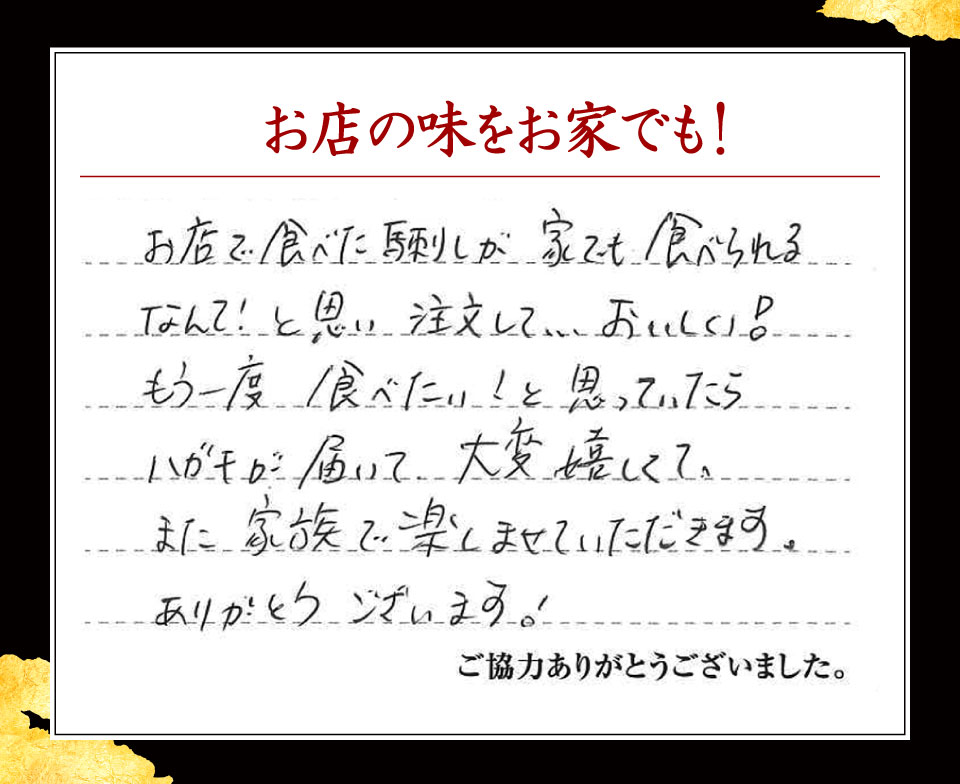 お店の味をお家でも!
お店で食べた馬刺しが 家でも食べられる
なんて!と思い 注文して、、、おいしい!
もう一度 食べたい!と思っていたら
ハガキが届いて 大変嬉しくて、
また家族で楽しませていただきます。
ありがとう ございます!
ご協力ありがとうございました。